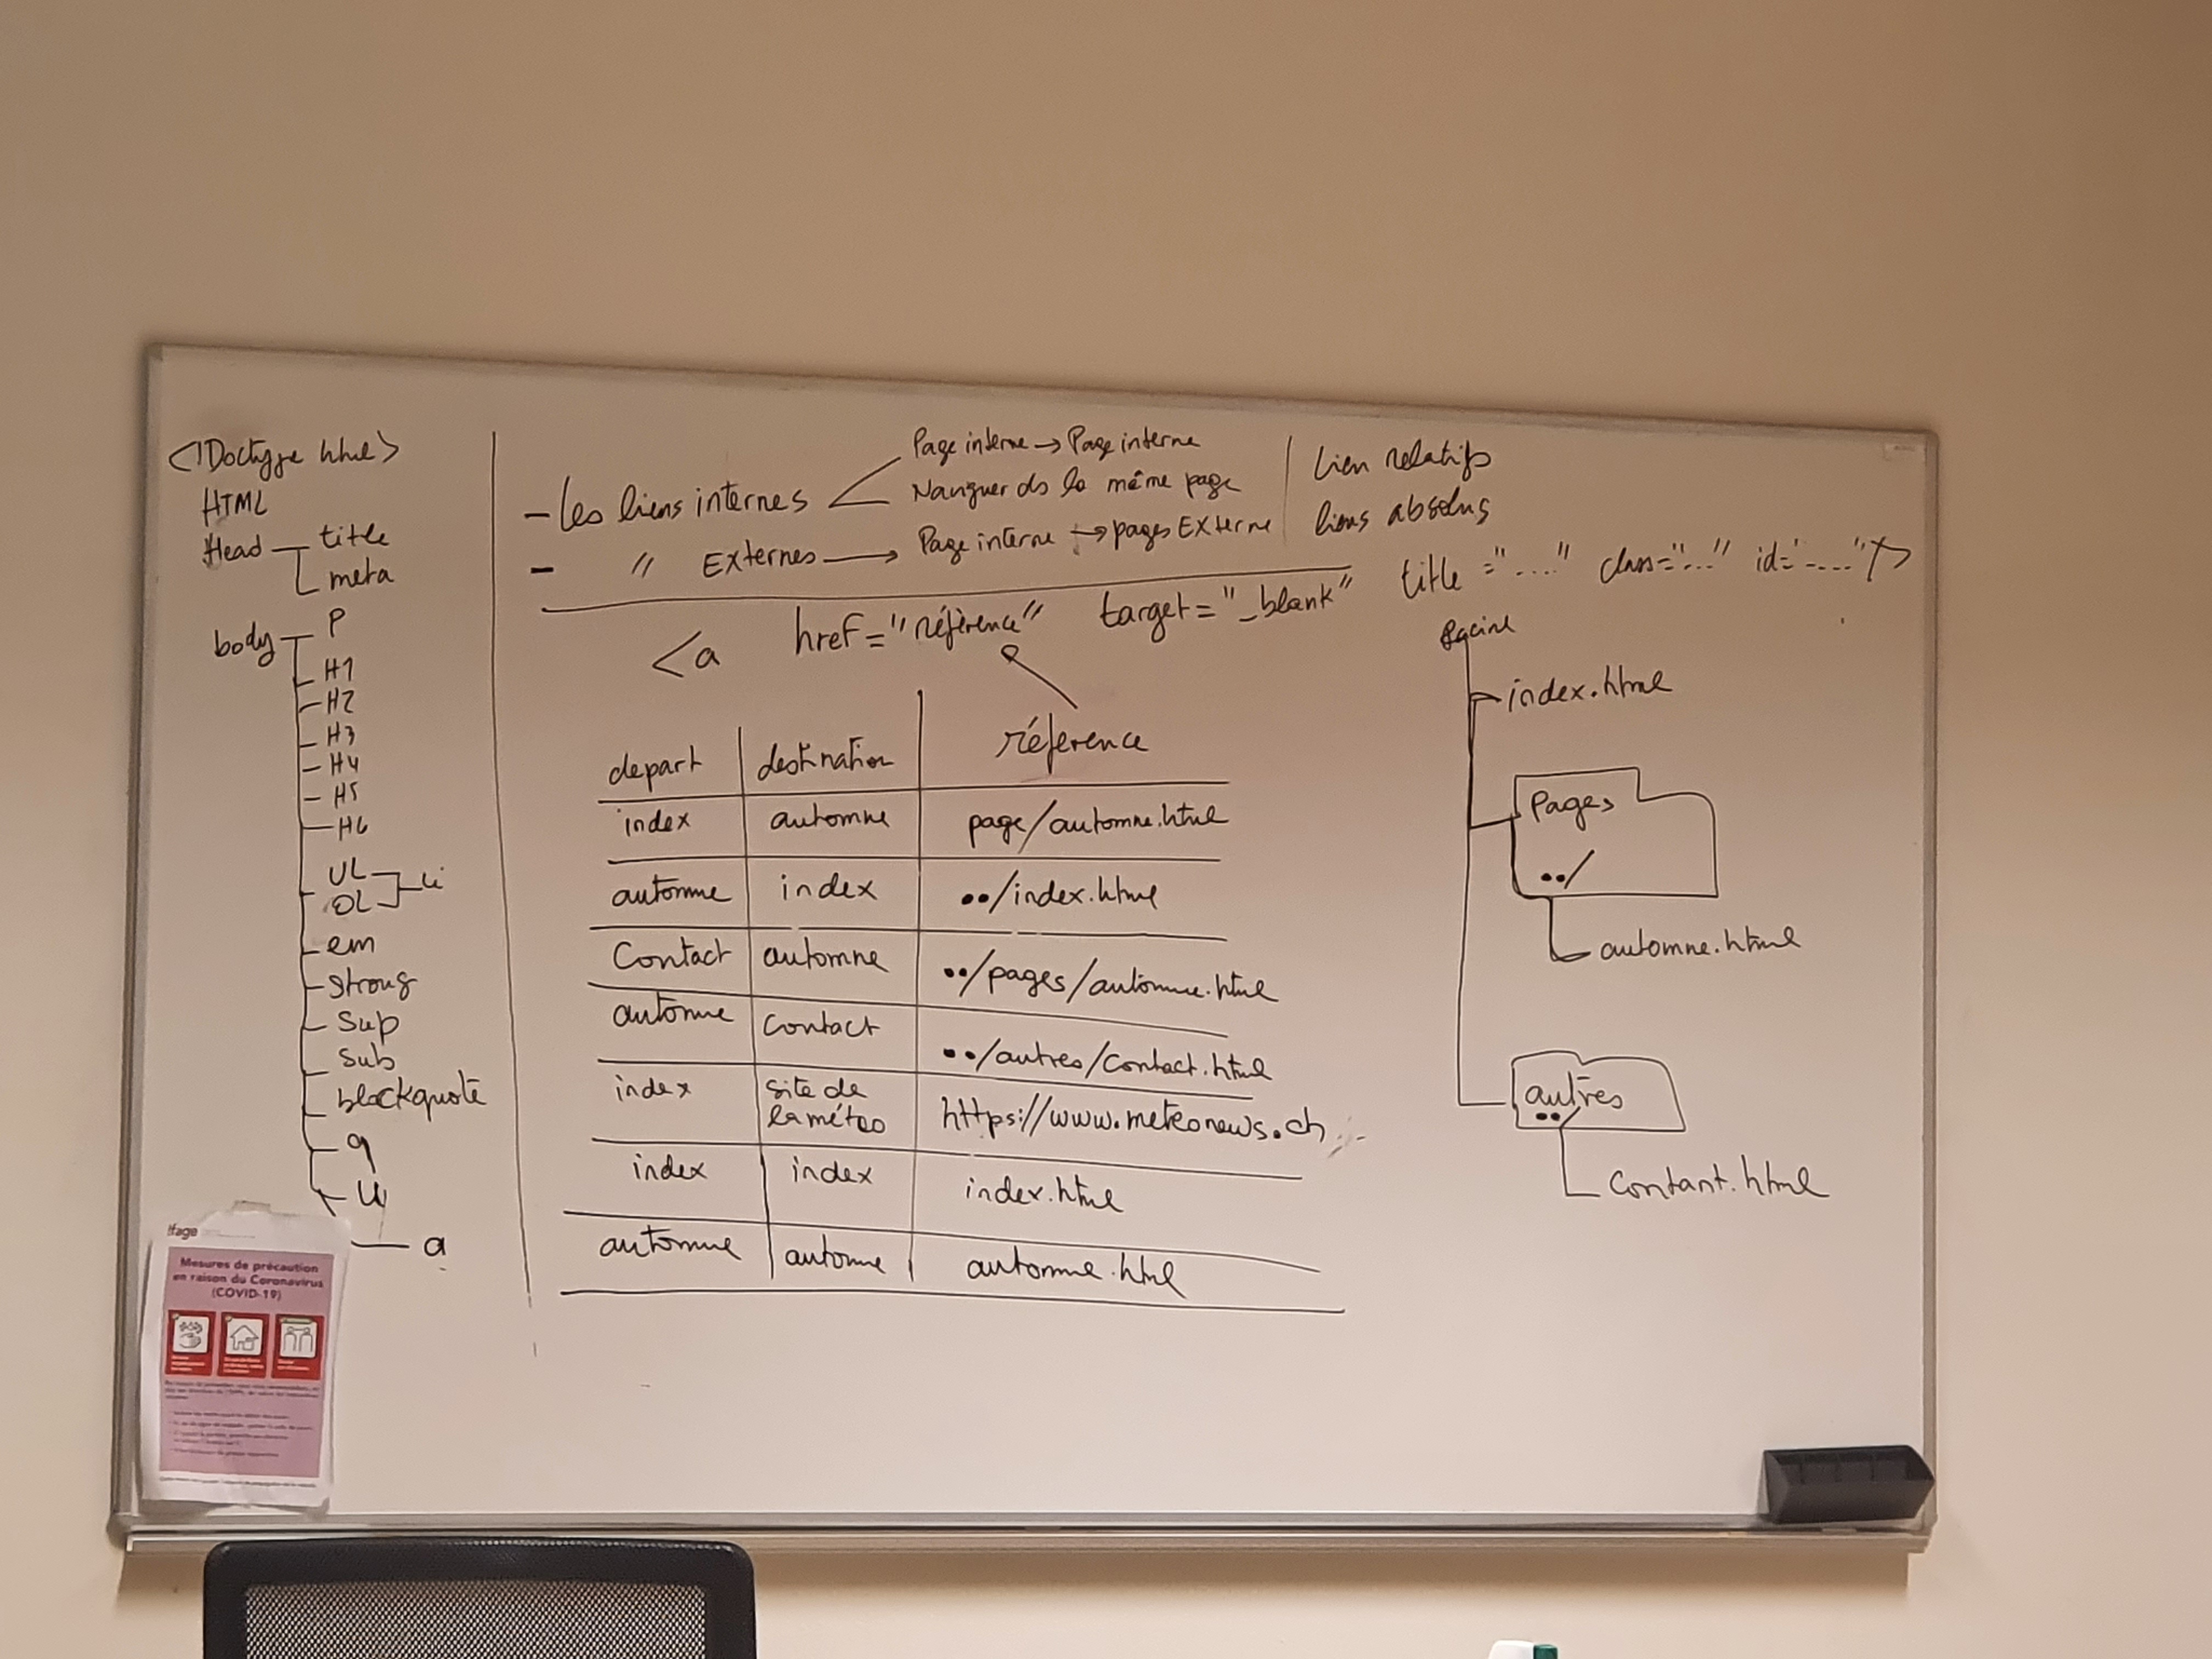 <!Doctype html>
HTML
Head title
meta
body P
H1
H2
H3
H4
H5
H6
UL li
OL
em
strong
Sup
Sub
blockquote
q
a
- les liens internes
Page interne → Page interne
Naviguer ds la même page
- " Externes → Page interne → pages Externe
Lien relatifs
liens absolus
<a href="référence" target="_blank" title="...." class="..." id="....."/>
depart destination référence
index automne page/automne.html
automne index ../index.html
Contact automne ../pages/automne.html
automne contact ../autres/contact.html
index site de la météo https://www.meteonews.ch
index index index.html
automne automne automne.html
Racine
index.html
Pages
../
automne.html
autres
../
Contant.html
ifage
Mesures de précaution
en raison du Coronavirus
(COVID-19)